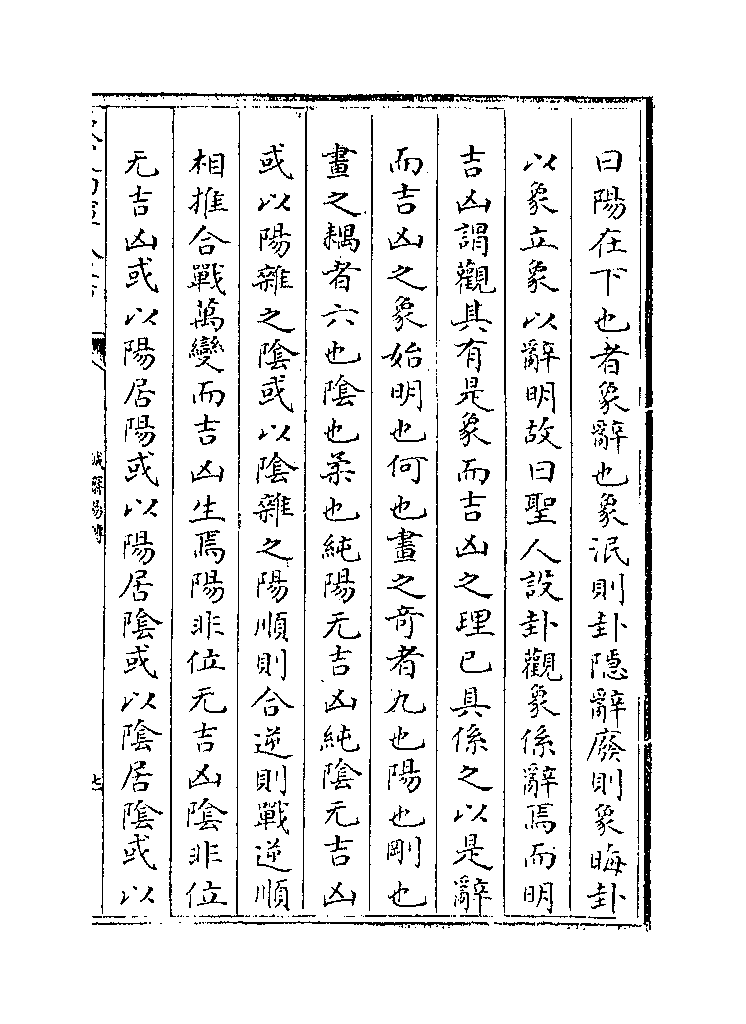 曰陽在下也者象辭也象泯則卦隱辭廢則象晦卦
以象立象以辭明故曰聖人設卦觀象係辭焉而明
吉凶謂觀其有是象而吉凶之理已具係之以是辭
而吉凶之象始明也何也畫之奇者九也陽也剛也
畫之耦者六也陰也柔也純陽无吉凶純陰无吉凶
或以陽雜之陰或以陰雜之陽順則合逆則戰逆順
相推合戰萬變而吉凶生焉陽非位无吉凶陰非位
无吉凶或以陽居陽或以陽居陰或以陰居陰或以
誠齋易傳
七